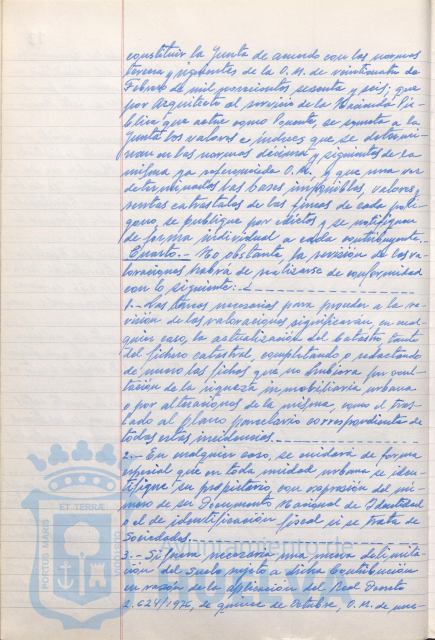 constituir la Junta de acuerdo con las normas
tercera y siguientes de la O. M. de veinticuatro de
Febrero de mil novecientos sesenta y seis; que
por Arquitecto al servicio de la Hacienda Pú-
blica que actúe como Ponente, se eleve a la
Junta los valores e índices que se determi-
nan en las normas décima y siguientes de la
misma ya referenciada O.M. y que una vez
determinadas las bases imponibles, valores y
rentas catastrales de las fincas de cada polí-
gono, se publique por edictos y se notifiquen
de forma individual a cada contribuyente.-
Cuarto.- No obstante, la revisión de las va-
loraciones habrá de realizarse de conformidad
con lo siguiente:
1.- Las tareas necesarias para proceder a la re-
visión de las valoraciones significarán, en cual-
quier caso, la actualización del Catastro tanto
del fichero catastral, completando o redactando
de nuevo las fichas que no hubiera por ocul-
tación de la riqueza inmobiliaria urbana
o por alteraciones de la misma, como el tras-
lado al plano parcelario correspondiente de
todas estas incidencias.
2.- En cualquier caso, se cuidará de forma
especial que en toda unidad urbana se iden-
tifique su propietario con expresión del nú-
mero de su Documento Nacional de Identidad
o el de identificación fiscal si se trata de
Sociedades.
3.- Si fuera necesaria una nueva delimita-
ción del suelo sujeto a dicha Contribución
en razón de la aplicación del Real Decreto
2.624/1976, de quince de Octubre, O.M. de nue-
PORTUS MARIS
ET TERRÆ